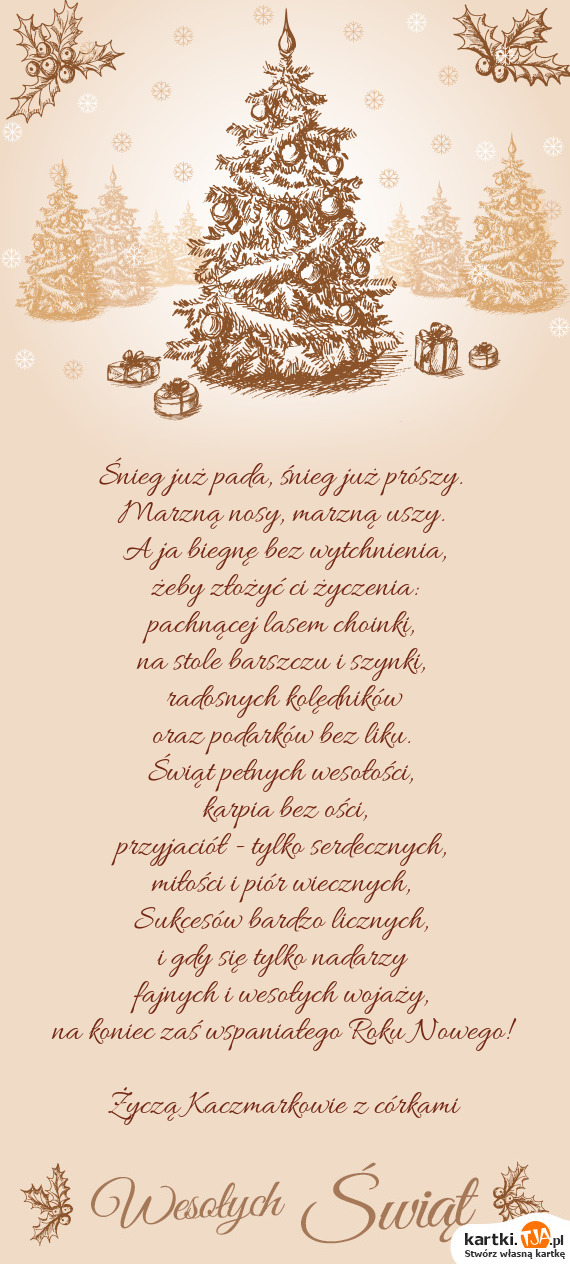 Śnieg już pada, śnieg już prószy.
Marzną nosy, marzną uszy.
A ja biegnę bez wytchnienia,
żeby złożyć ci życzenia:
pachnącej lasem choinki,
na stole barszczu i szynki,
radosnych kolędników
oraz podarków bez liku.
Świąt pełnych wesołości,
karpia bez ości,
przyjaciół - tylko serdecznych,
miłości i piór wiecznych,
Sukcesów bardzo licznych,
i gdy się tylko nadarzy
fajnych i wesołych wojaży,
na koniec zaś wspaniałego Roku Nowego!
Życzą Kaczmarkowie z córkami
Wesołych Świąt
kartki.TJA.pl
Stwórz własną kartkę